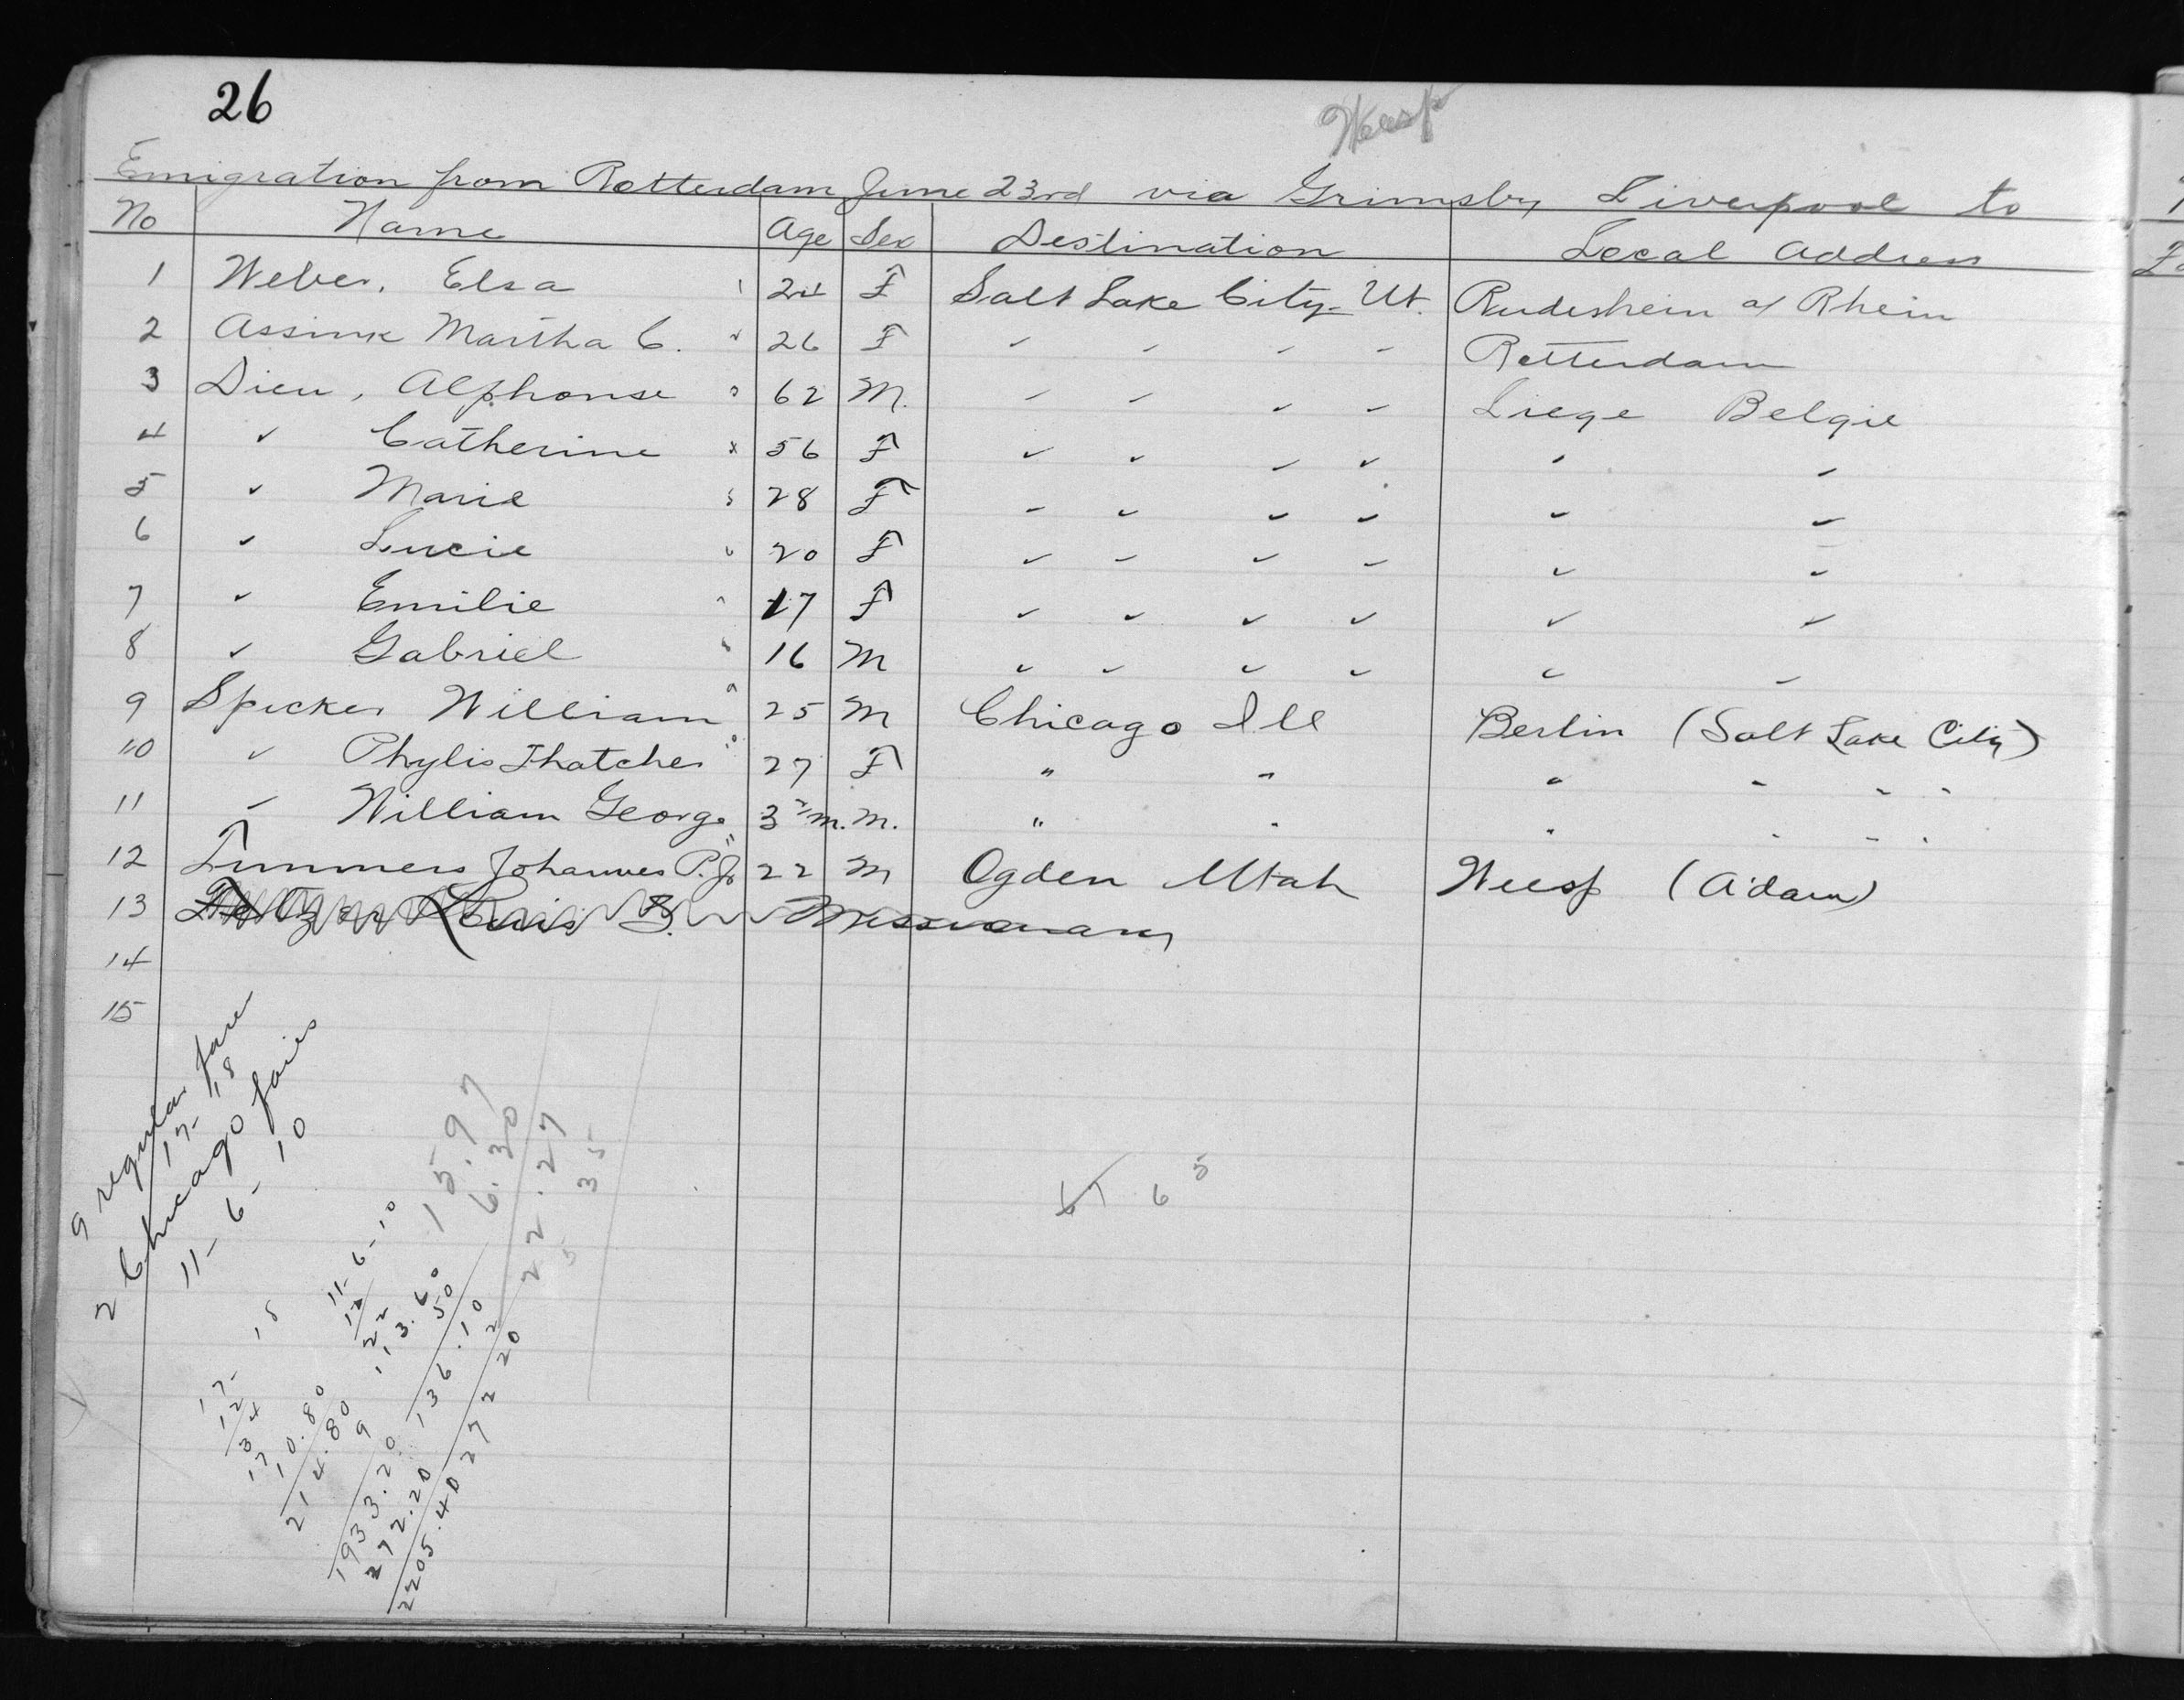 26
Weesp
Emigration from Rotterdam June 23rd via Grimsby, Liverpool to
No Name Age Sex Destination Local Address
1 Weber, Elsa 24 F Salt Lake City Ut. Rudeshein a/ Rhein
2 Assink Martha C. 26 F " " " " Rotterdam
3 Dieu, Alphonse 62 M. " " " " Liege Belgie
4 " Catherine 56 F " " " " " "
5 " Marie 28 F " " " " " "
6 " Lucie 20 F " " " " " "
7 " Emilie 17 F " " " " " "
8 " Gabriel 16 M " " " " " "
9 Spicker William 25 M Chicago Ill Berlin (Salt Lake City)
10 " Phylis Thatcher 27 F " " " " " "
11 " William George 3 m. M. " " " " " "
12 Timmers Johannes P. J. 22 M Ogden Utah Weesp (A'dam)
13 Louis S. Missionary
14
15
9 regular fare
17- 18
2 Chicago fares
11- 6- 10
15.97
6.30
22.27
35
5
67 6 5
11- 6- 10
12
22
113.60
22.50
136.10
2
272 20
17- 18
12
34
17
10.80
214.80
9
1933.20
272.20
2205.40